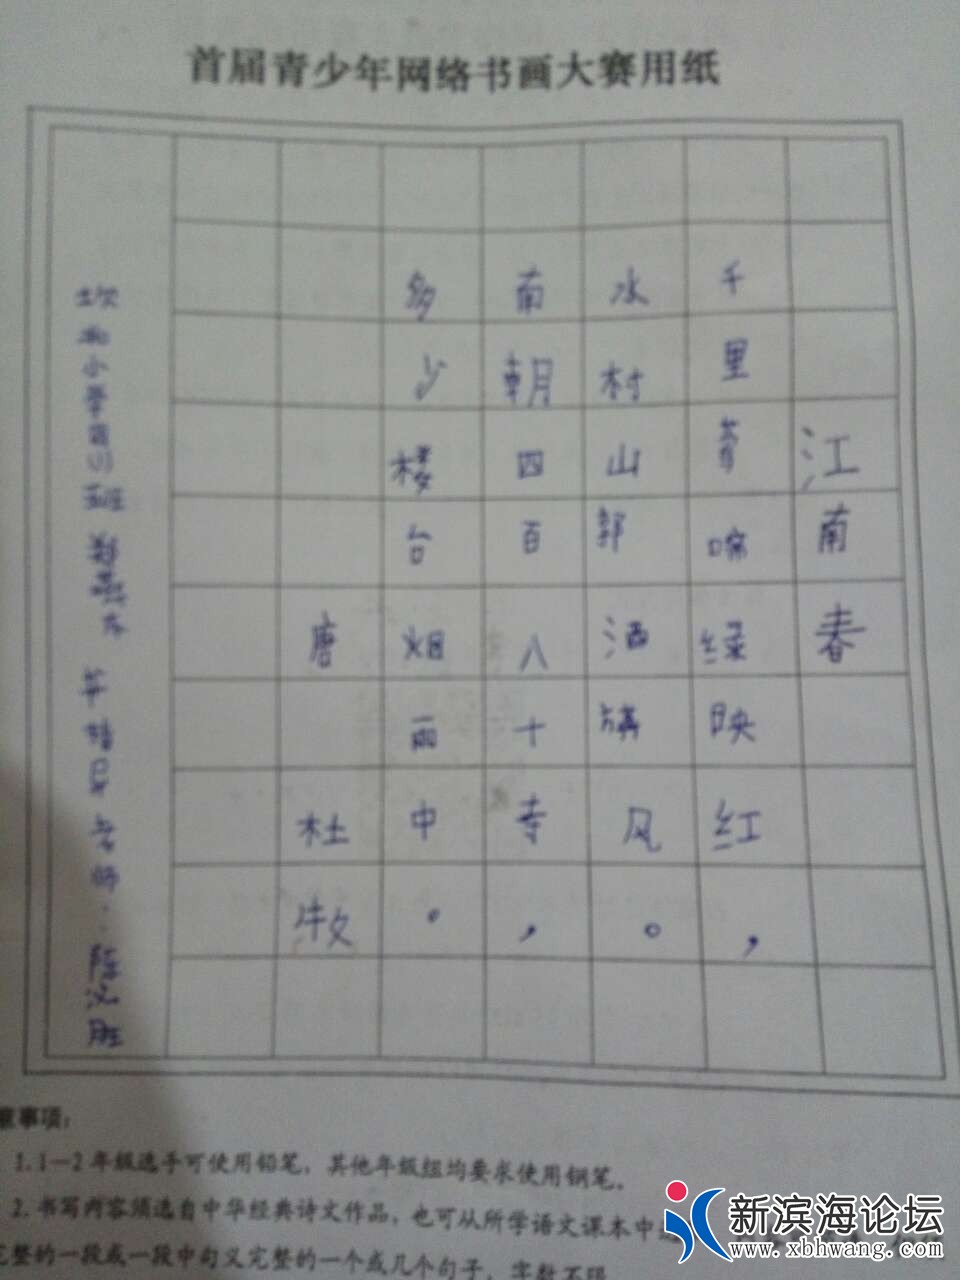 首届青少年网络书画大赛用纸
江南春
千里莺啼绿映红，
水村山郭酒旗风。
南朝四百八十寺，
多少楼台烟雨中。
唐 杜牧
小学 班 指导老师：陈 胜
意事项：
1.1—2年级选手可使用铅笔，其他年级组均要求使用钢笔。
2.书写内容须选自中华经典诗文作品，也可从所学语文课本中
完整的一段或一段中句义完整的一个或几个句子，字数不限
新滨海论坛
www.xbhwang.com